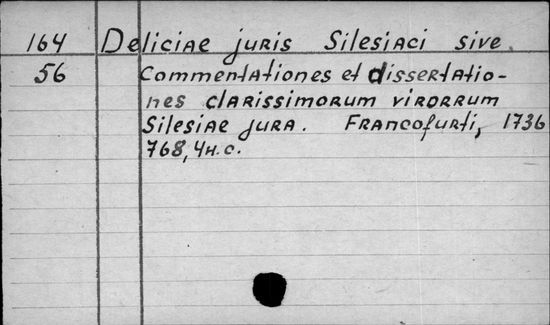 164 Deliciae juris Silesiaci sive.
56 Commentationes et dissertatio-
nes clarissimorum virorrum
Silesiae jura. Francofurti, 1736
768, 4н.с.